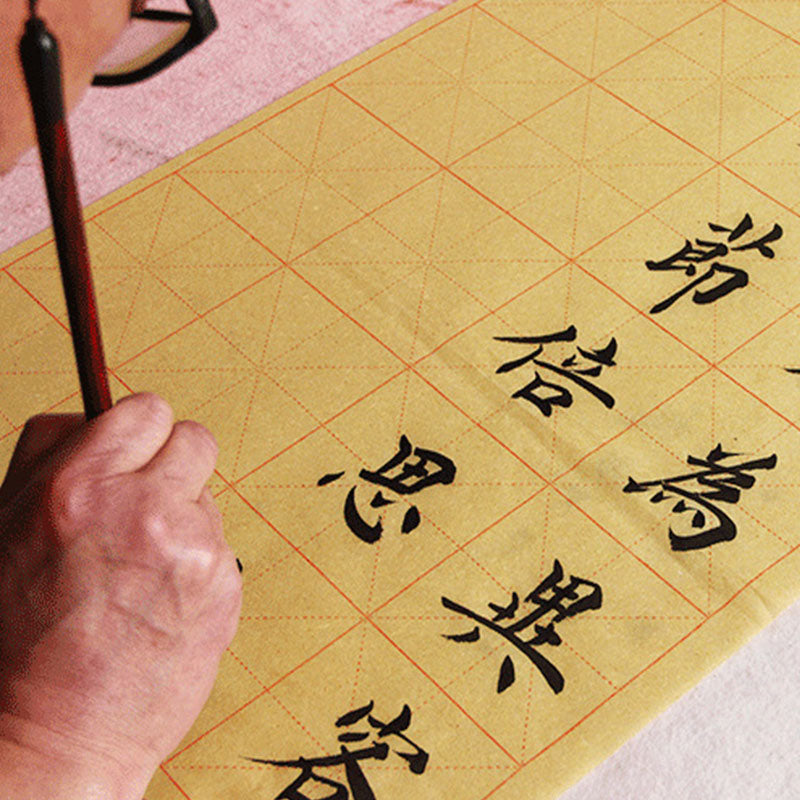 為異客
節倍思